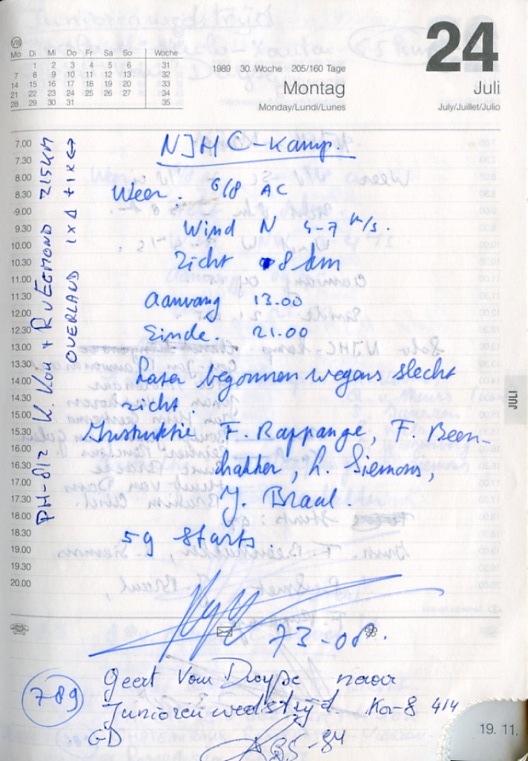 VIII
Mo Di Mi Do Fr Sa So Woche
1 2 3 4 5 6 31
7 8 9 10 11 12 13 32
14 15 16 17 18 19 20 33
21 22 23 24 25 26 27 34
28 29 30 31 35
1989 30. Woche 205/160 Tage
Montag
Monday/Lundi/Lunes
24
Juli
July/Juillet/Julio
7.00
7.30
8.00
8.30
9.00
9.30
10.00
10.30
11.00
11.30
12.00
12.30
13.00
13.30
14.00
14.30
15.00
15.30
16.00
16.30
17.00
17.30
18.00
18.30
19.00
19.30
20.00
NJHC-Kamp.
Weer: 6/8 AC
Wind N 4-7 m/s.
Zicht 8 km
Aanvang 13.00
Einde. 21.00
Later begonnen wegens slecht
zicht.
Instruktie F. Rappange, F. Been-
hakker, L. Siemons,
J. Braal.
59 starts.
73-08.
789
Geert van naar
Juniorenwedstrijd Ka-8 414
GD
PH-812 K. Kou + R v Egmond 215 KM
OVERLAND 1x Δ
JULI
19. 11.